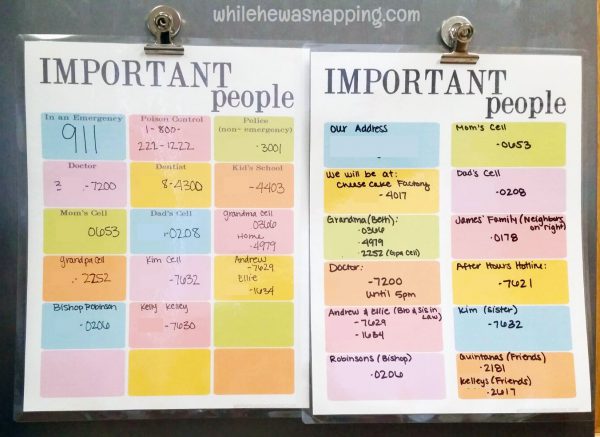 whilehewasnapping.com
IMPORTANT
people
In an Emergency
911
Poison Control
1-800-
222-1222
Police
(non-emergency)
.3001
Doctor
-7200
Dentist
8-4300
Kid's School
-4403
Mom's Cell
0653
Dad's Cell
-0208
Grandma Cell
0366
Home
.4979
Grandpa Cell
.2252
Kim Cell
-7632
Andrew
-7629
Ellie
-1634
Bishop Robinson
-0206
Kelly Kelley
-7630
IMPORTANT
people
Our Address
Mom's Cell
-0653
We will be at:
Cheese Cake Factory
-4017
Dad's Cell
-0208
Grandma (Beth):
-0366
-4979
-2252 (Gpa Cell)
James' Family (Neighbors
on right)
.0178
Doctor:
-7200
until 5pm
After Hours Hotline:
-7621
Andrew & Ellie (Bro & Sis in
Law)
-7629
-1634
Kim (Sister)
-7632
Robinsons (Bishop)
.0206
Quintanas (Friends)
.2181
Kelleys (Friends)
.2617